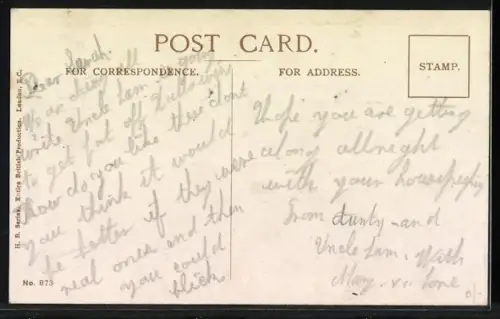 POST CARD.
FOR CORRESPONDENCE.
FOR ADDRESS.
STAMP.
H. B. Series, Entire British Production, London, E.C.
No. 873
Dear Sarah.
write Uncle Sam is going
to get fat off
how do you like these dont
you think it would
be better if they were
real ones and then
you could
Hope you are getting
along allright
with your housekeeping
From Aunty and
Uncle Sam. With
May love